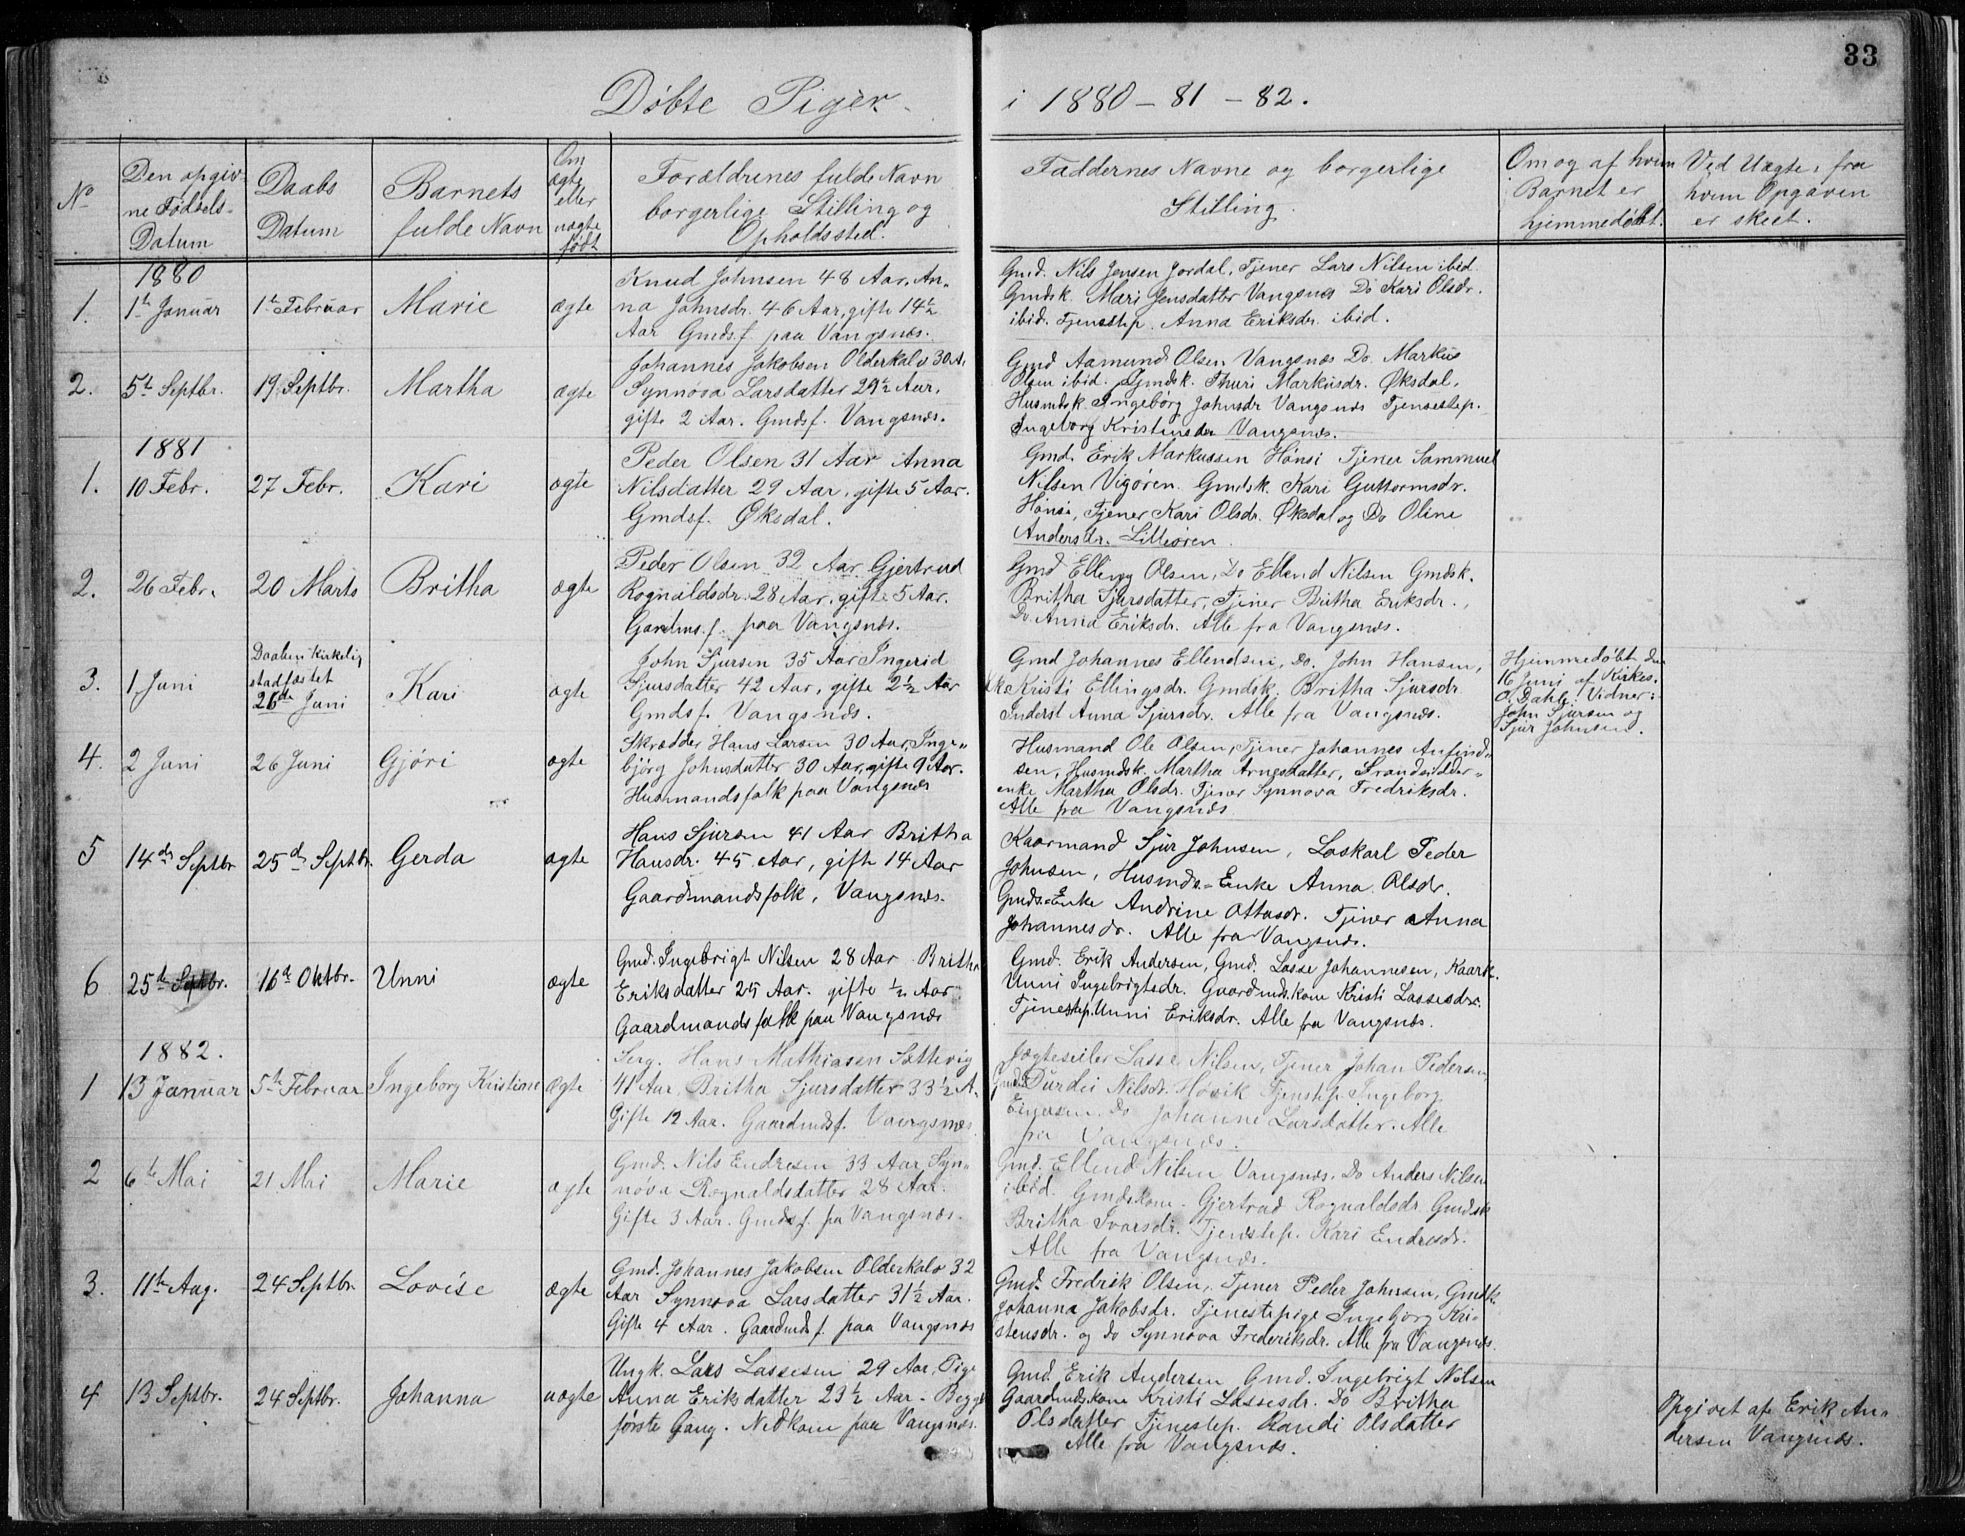 33
Døbte Piger i 1880-81-82.
No
Den opgiv-
ne Fødsels-
Datum
Daabs
Datum
Barnets
fulde Navn
Om
ægte
eller
uægte
født
Forældrenes fulde Navn
borgerlige Stilling og
Opholdssted.
Faddernes Navne og borgerlige
Stilling.
Om og af hvem
Barnet er
hjemmedøbt.
Ved Uægte, fra
hvem Opgaven
er skeet.
1880
1. 1ste Januar 1ste Februar Marie ægte
Knud Johnsen 48 Aar, An-
na Johnsdr. 46 Aar, gifte 14½
Aar Gmdsf. paa Vangsnæs.
Gmd. Nils Jensen Jordal, Tjener Lars Nilsen ibid.
Gmdsk. Mari Jensdatter Vangsnes Do Kari Olsdr.
ibid. Tjenestep. Anna Eriksdr. ibid.
2. 5te Septbr. 19 Septbr. Martha ægte
Johannes Jakobsen Olderkalv 30 A.
Synnøva Larsdatter 29½ Aar,
gifte 2 Aar. Gmdsf. Vangsnæs.
Gmd Aamund Olsen Vangsnæs Do. Markus
Olsen ibid. Gmdsk. Thuri Markusdr. Øksdal,
Husmdsk. Ingebørg Johnsdr Vangsnæs Tjenestep.
Ingeborg Kristensdr Vangsnæs.
1881
1. 10 Febr. 27 Febr. Kari ægte
Peder Olsen 31 Aar Anna
Nilsdatter 29 Aar, gifte 5 Aar.
Gmdsf. Øksdal.
Gmd. Erik Markussen Hønsi Tjener Sammuel
Nilsen Vigøren. Gmdsk. Kari Guttormsdr.
Hønsi, Tjener Kari Olsdr. Øksdal og Do Oline
Andersdr. Litleøren.
2. 26 Febr. 20 Marts Britha ægte
Peder Olsen 32 Aar Gjertrud
Rognaldsdr. 28 Aar, gifte 5 Aar.
Gardms.f. paa Vangsnæs.
Gmd Elling Olsen, Do Ellend Nilsen Gmdsk.
Britha Sjursdatter, Tjener Britha Eriksdr.,
Do. Anna Eriksdr. Alle fra Vangsnæs.
3. 1 Juni
Daaben kirkelig
stadfæstet
26de Juni
Kari ægte
John Sjursen 35 Aar Ingerid
Sjursdatter 42 Aar, gifte 2½ Aar
Gmdsf. Vangsnæs.
Gmd Johannes Ellendsen, Do. John Hansen,
Kristi Ellingsdr. Gmdsk. Britha Sjursdr
Inderst Anna Sjursdr. Alle fra Vangsnæs.
Hjemmedøbt den
16 Juni af Kirkes.
O. Dahle. Vidner:
John Sjursen og
Sjur Johnsen.
4. 2 Juni 26 Juni Gjøri ægte
Skrædder Hans Larsen 30 Aar, Inge-
bjørg Johnsdatter 30 Aar, gifte 9 Aar.
Husmandsfolk paa Vangsnæs
Husmand Ole Olsen, Tjener Johannes Anfind-
sen, Husmdsk. Martha Arnesdatter, Strandsidder-
enke Martha Olsdr. Tjener Synnøva Fredriksdr.
Alle fra Vangsnæs
5 14de Septbr 25de Septbr. Gerda ægte
Hans Sjursen 41 Aar Britha
Hansdr. 45 Aar, gifte 14 Aar
Gaardmandsfolk, Vangsnæs.
Kaarmand Sjur Johnsen, Løskarl Peder
Johnsen, Husmds-Enke Anna Olsdr.
Gmds-Enke Andrine Ottasdr. Tjener Anna
Johannesdr. Alle fra Vangsnæs.
6 25de Septbr. 16de Oktbr. Unni ægte
Gmd. Ingebrigt Nilsen 28 Aar Britha
Eriksdatter 25 Aar. gifte ½ Aar
Gaardmandsfolk paa Vangsnæs
Gmd. Erik Andersen, Gmd. Lasse Johannesen, Kaark.
Unni Ingebrigtsdr. Gaardmds.kone Kristi Lassesdr.
Tjenestep. Unni Eriksdr. Alle fra Vangsnæs.
1882.
1 13 Januar 5te Februar Ingeborg Kristiane ægte
Serg. Hans Mathiasen Sættevig
41 Aar, Britha Sjursdatter 33½ A.
Gifte 12 Aar. Gaardmdsf. Vangsnæs
Jægteseiler Lasse Nilsen, Tjener Johan Pedersen,
Gmdsk. Durdei Nilsdr. Høvik Tjenestep. Ingeborg
Do Johanne Larsdatter. Alle
fra Vangsnæs.
2 6te Mai 21 Mai Marie ægte
Gmd. Nils Endresen 33 Aar, Syn-
nøva Rognaldsdatter 28 Aar.
Gifte 3 Aar. Gmdsf. pa Vangsnæs.
Gmd. Ellend Nilsen Vangsnæs. Do Anders Nilsen
ibid. Gmdskone Gjertrud Rognaldsdr. Gmdsk
Britha Ivarsdr. Tjenestep. Kari Endresdr.
Alle fra Vangsnæs.
3. 11te Aug. 24 Septbr. Lovise ægte
Gmd. Johannes Jakobsen Olderkalv 32
Aar Synnøva Larsdatter 31½ Aar.
Gifte 4 Aar. Gaardmdsf. paa Vangsnæs
Gmd. Fredrik Olsen, Tjener Peder Johnsen, Gmdk.
Johanna Jakobsdr. Tjenestepige Ingebjørg Kri-
stensdr. og do Synnøva Frederiksdr. Alle fra Vangsnæs.
4 13 Septbr. 24 Septbr. Johanna uægte
Ungk. Lars Lassesen 29 Aar, Pige
Anna Eriksdatter 23½ Aar - Begge
første Gang. Nedkom paa Vangsnæs.
Gmd. Erik Andersen Gmd. Ingebrigt Nilsen
Gaardmdskone Kristi Lassesdr. Do Britha
Olsdatter Tjenestep. Randi Olsdatter
Alle fra Vangsnæs.
Opgivet af Erik An-
dersen Vangsnæs.